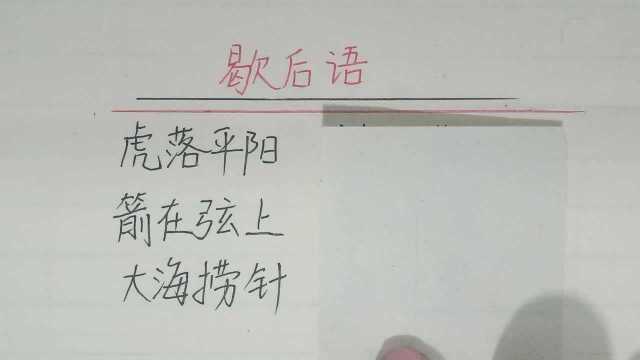 歇后语
虎落平阳
箭在弦上
大海捞针